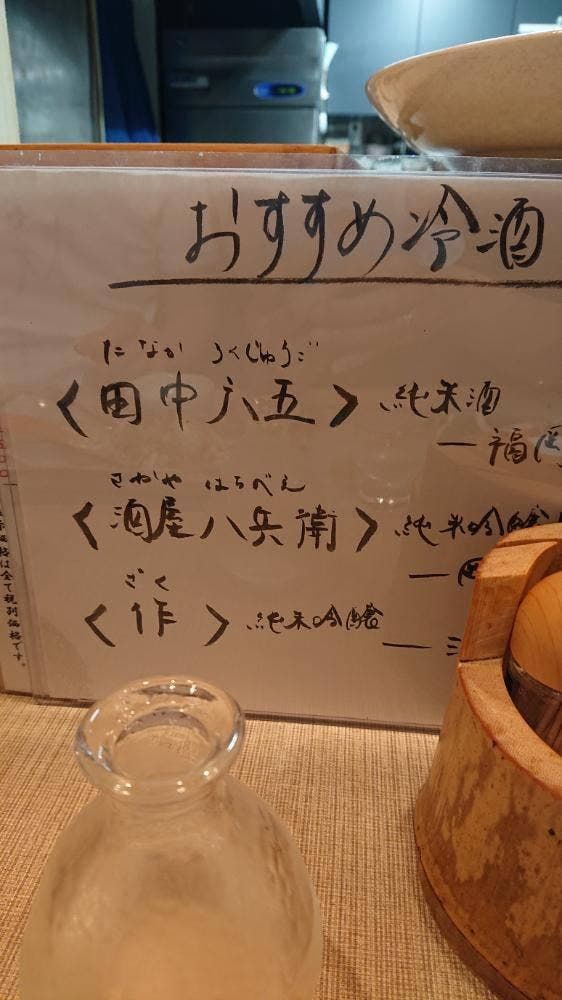 おすすめ冷酒
たなか ろくじゅうご
〈田中六五〉 純米酒
―福岡
さかや はちべえ
〈酒屋八兵衛〉 純米吟醸
―
ざく
〈作〉 純米吟醸
―三
は全て税別価格です。